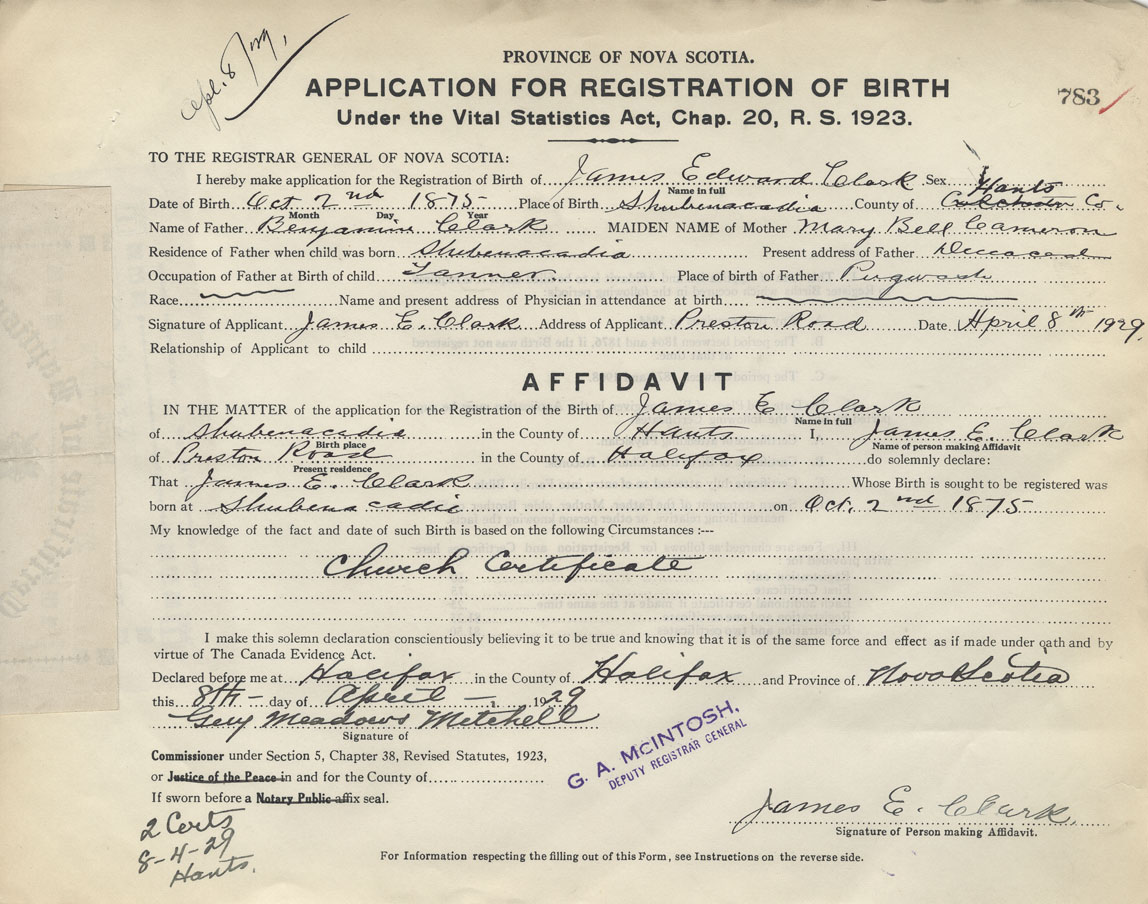 Apl. 8/29,
PROVINCE OF NOVA SCOTIA.
APPLICATION FOR REGISTRATION OF BIRTH
783
Under the Vital Statistics Act, Chap. 20, R. S. 1923.
TO THE REGISTRAR GENERAL OF NOVA SCOTIA:
I hereby make application for the Registration of Birth of James Edward Clark Sex
Name in full
Hants
Date of Birth Oct 2nd 1875 Place of Birth Shubenacadia County of Colchester Co.
Month Day Year
Name of Father Benjamin Clark MAIDEN NAME of Mother Mary Bell Cameron
Residence of Father when child was born Shubenacadia Present address of Father Deceased
Occupation of Father at Birth of child Tanner Place of birth of Father Pugwash
Race Name and present address of Physician in attendance at birth
Signature of Applicant James E. Clark Address of Applicant Preston Road Date April 8th 1929.
Relationship of Applicant to child
AFFIDAVIT
IN THE MATTER of the application for the Registration of the Birth of James E Clark
Name in full
of Shubenacadia in the County of Hants I, James E. Clark
Birth place Name of person making Affidavit
of Preston Road in the County of Halifax do solemnly declare:
Present residence
That James E. Clark Whose Birth is sought to be registered was
born at Shubenacadie on Oct. 2nd 1875
My knowledge of the fact and date of such Birth is based on the following Circumstances :---
Church Certificate
I make this solemn declaration conscientiously believing it to be true and knowing that it is of the same force and effect as if made under oath and by
virtue of The Canada Evidence Act.
Declared before me at Halifax in the County of Halifax and Province of Nova Scotia
this 8th day of April 1929
Guy Meadows Mitchell
Signature of
Commissioner under Section 5, Chapter 38, Revised Statutes, 1923,
or Justice of the Peace in and for the County of
If sworn before a Notary Public affix seal.
G. A. McINTOSH,
DEPUTY REGISTRAR GENERAL
James E. Clark.
Signature of Person making Affidavit.
2 Certs
8-4-29
Hants.
For Information respecting the filling out of this Form, see Instructions on the reverse side.